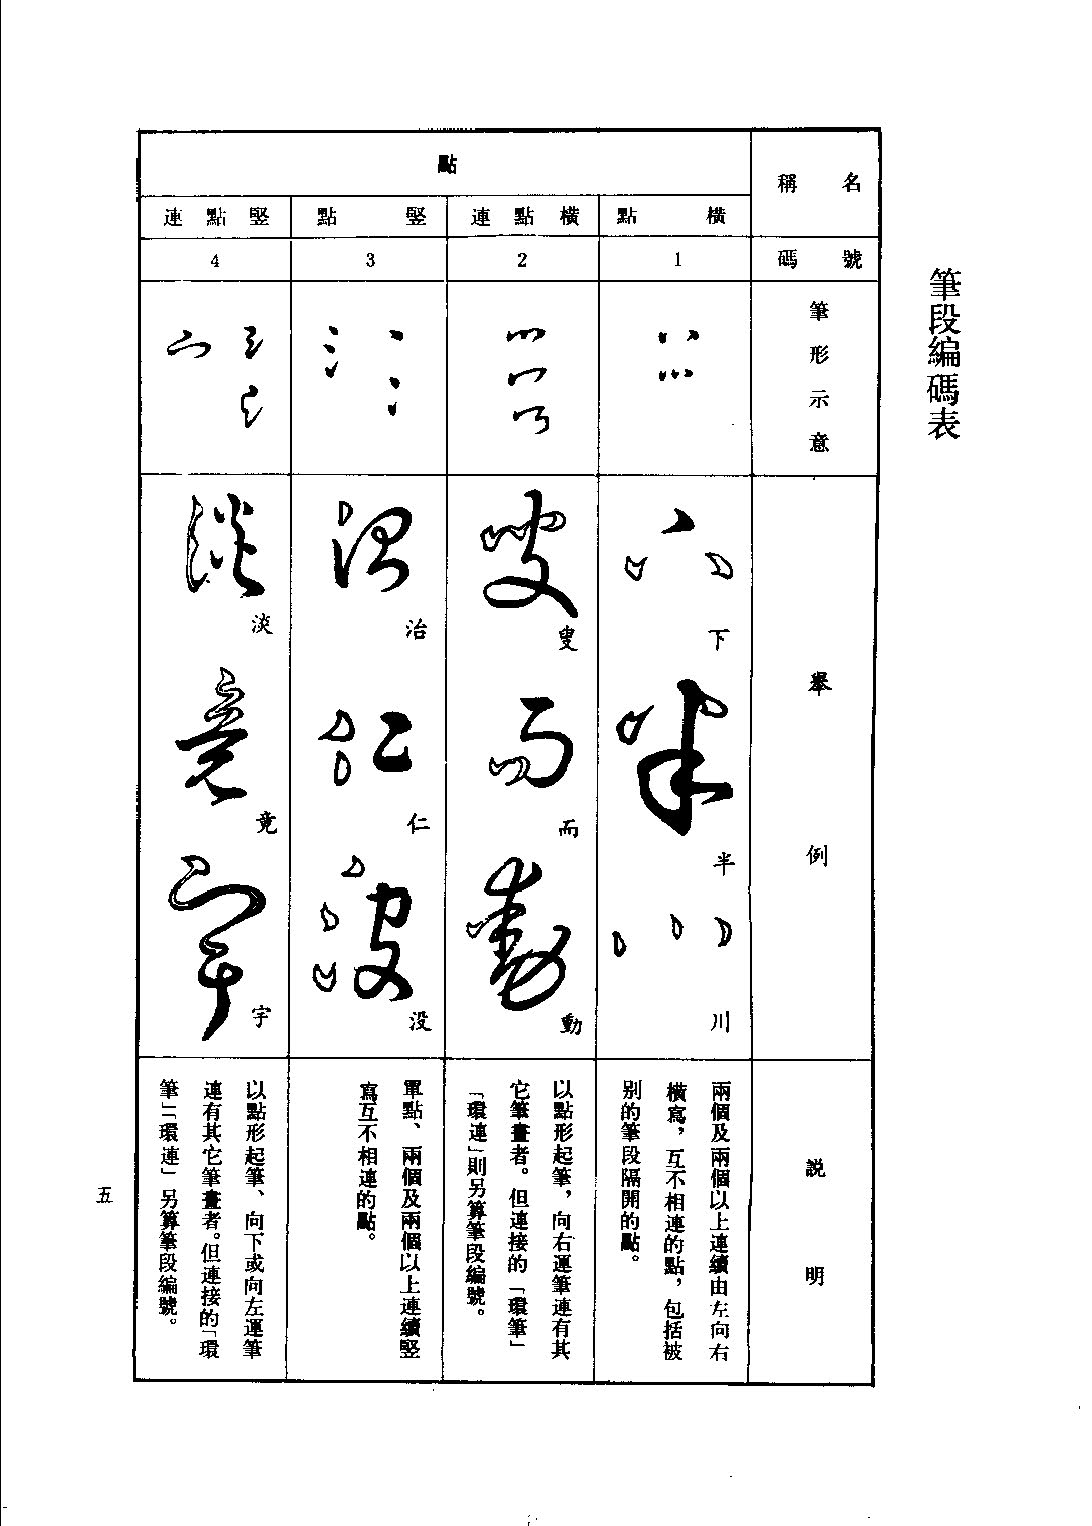 筆段編碼表
名稱
號碼
筆形示意
舉例
説明
點
橫點
1
下
半
川
兩個及兩個以上連續由左向右
橫寫，互不相連的點，包括被
别的筆段隔開的點。
橫點連
2
叟
而
動
以點形起筆，向右運筆連有其
它筆畫者。但連接的「環筆」
「環連」則另算筆段編號。
竪點
3
治
仁
没
單點、兩個及兩個以上連續竪
寫互不相連的點。
竪點連
4
淡
竟
宇
以點形起筆、向下或向左運筆
連有其它筆畫者。但連接的「環
筆」「環連」另算筆段編號。
五